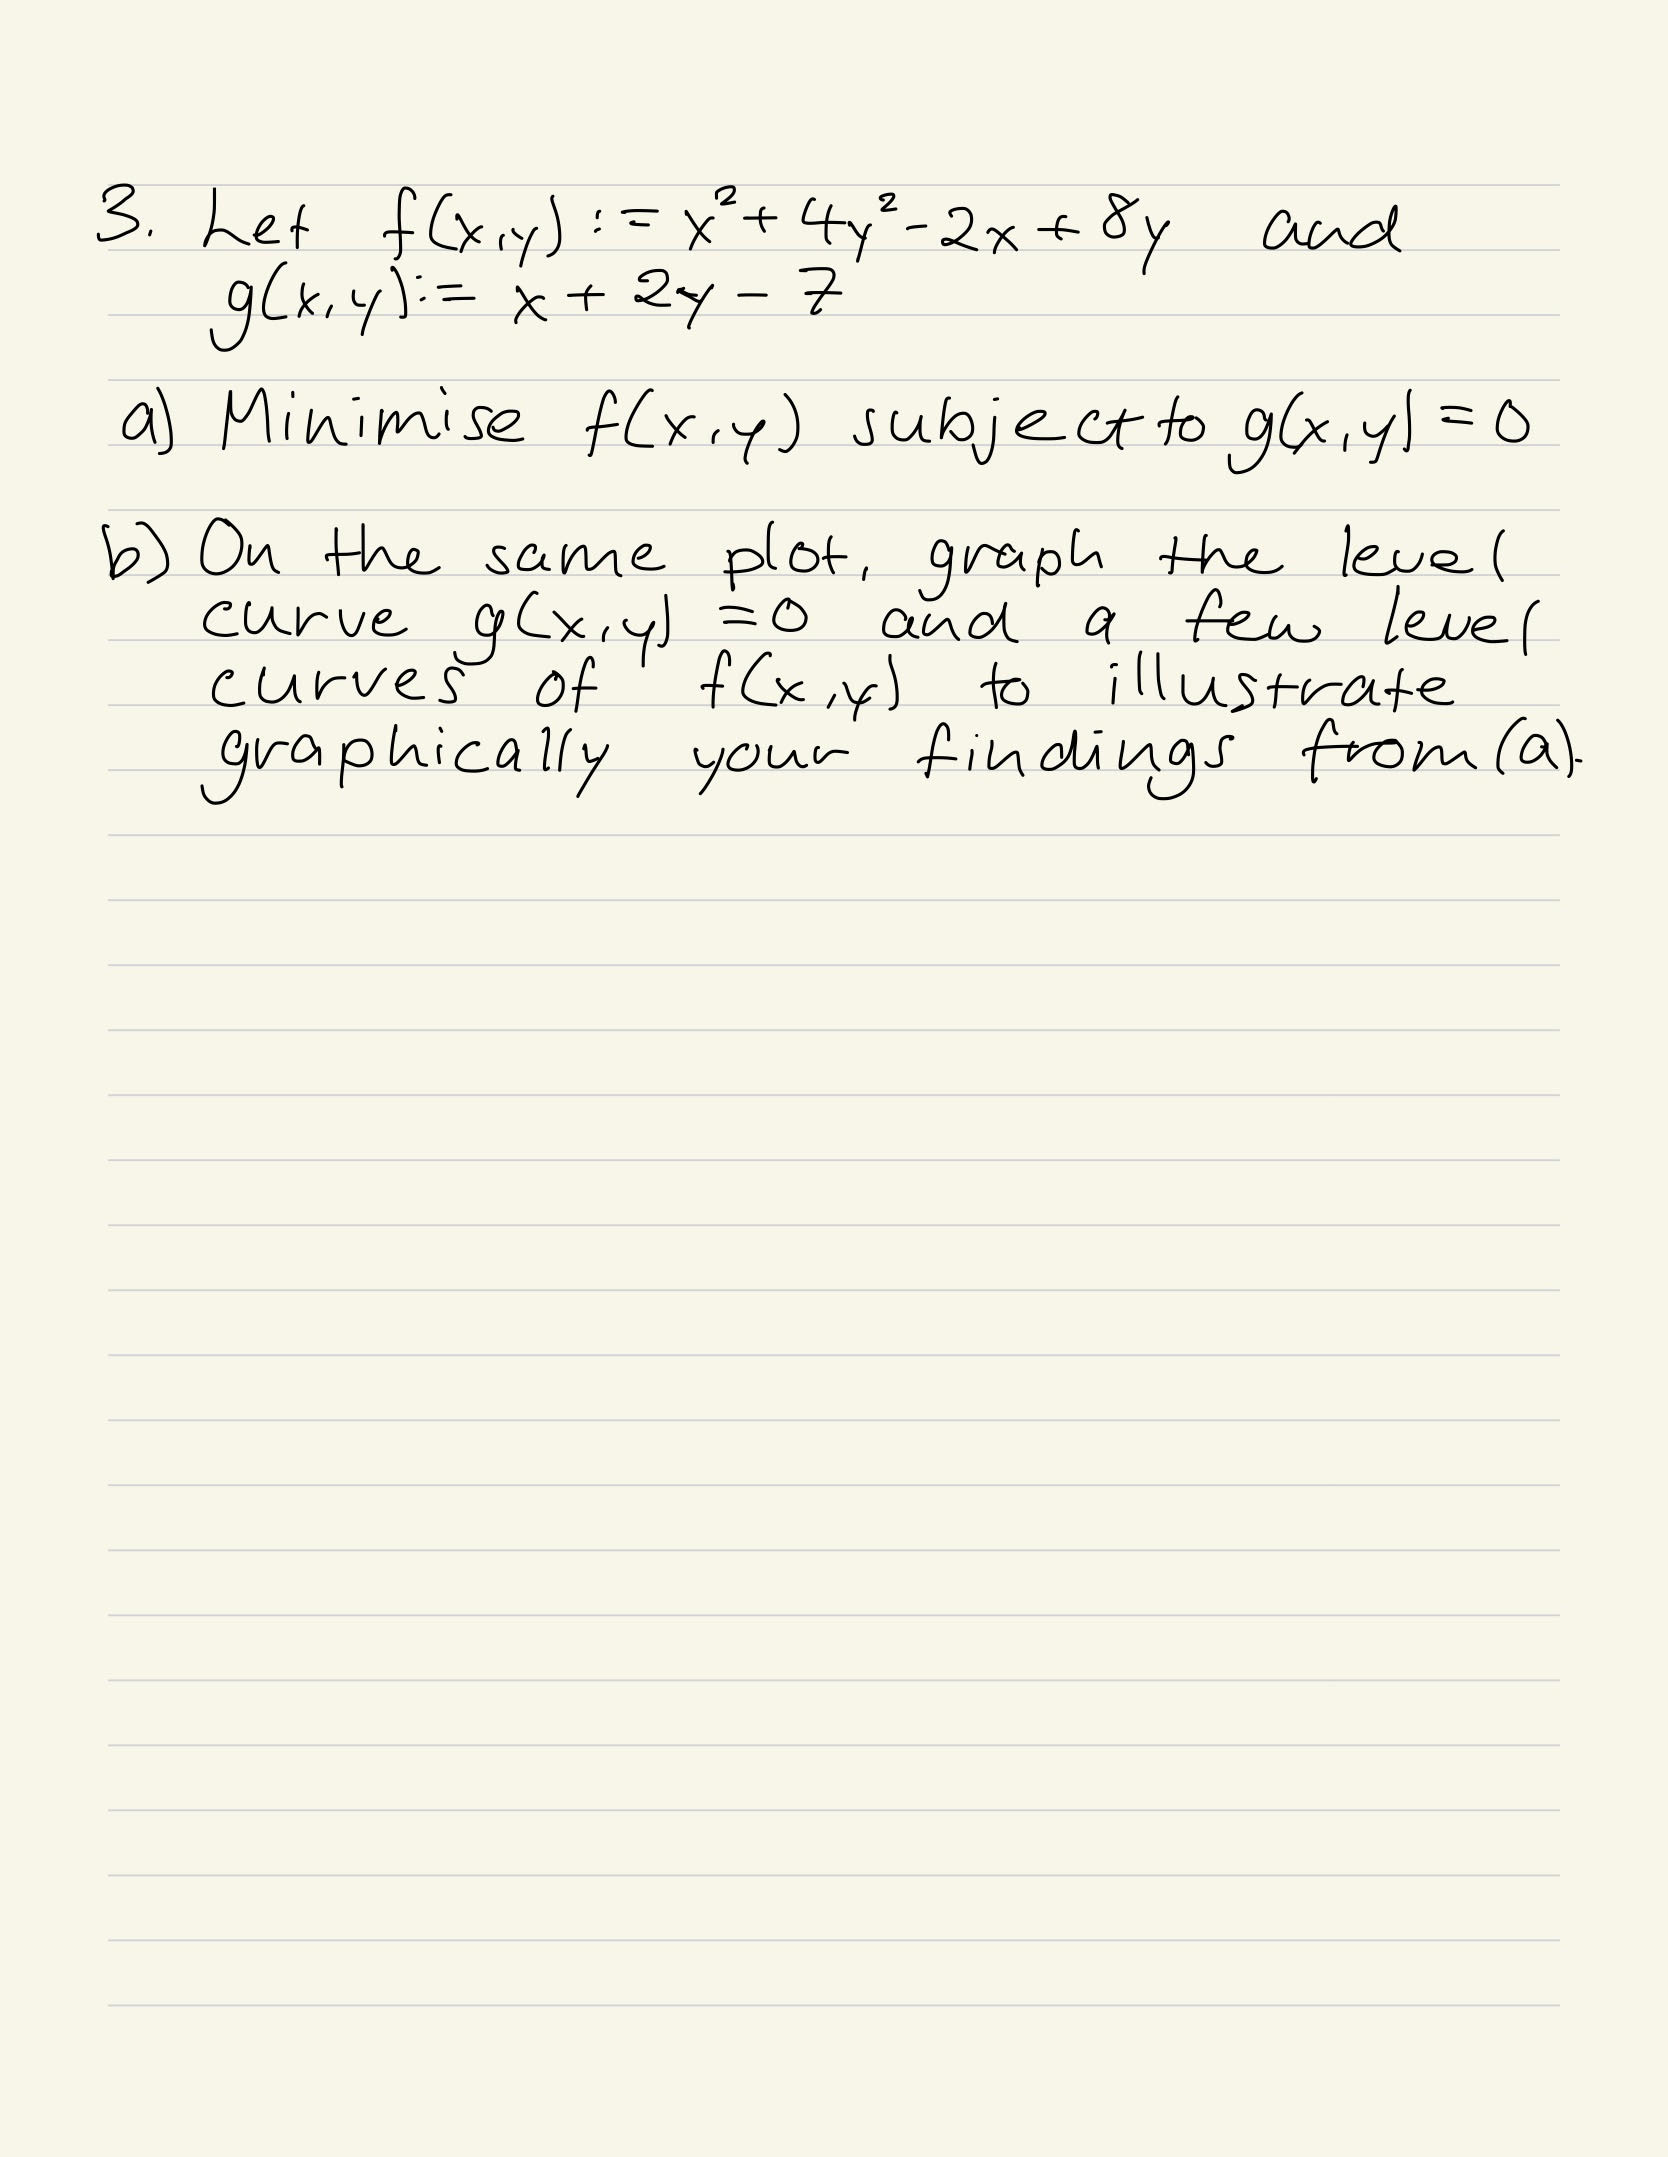 3. Let f(x,y) := x² + 4y² - 2x + 8y and
g(x,y) := x + 2y - 7
a) Minimise f(x,y) subject to g(x,y) = 0
b) On the same plot, graph the level
curve g(x,y) = 0 and a few level
curves of f(x,y) to illustrate
graphically your findings from (a).